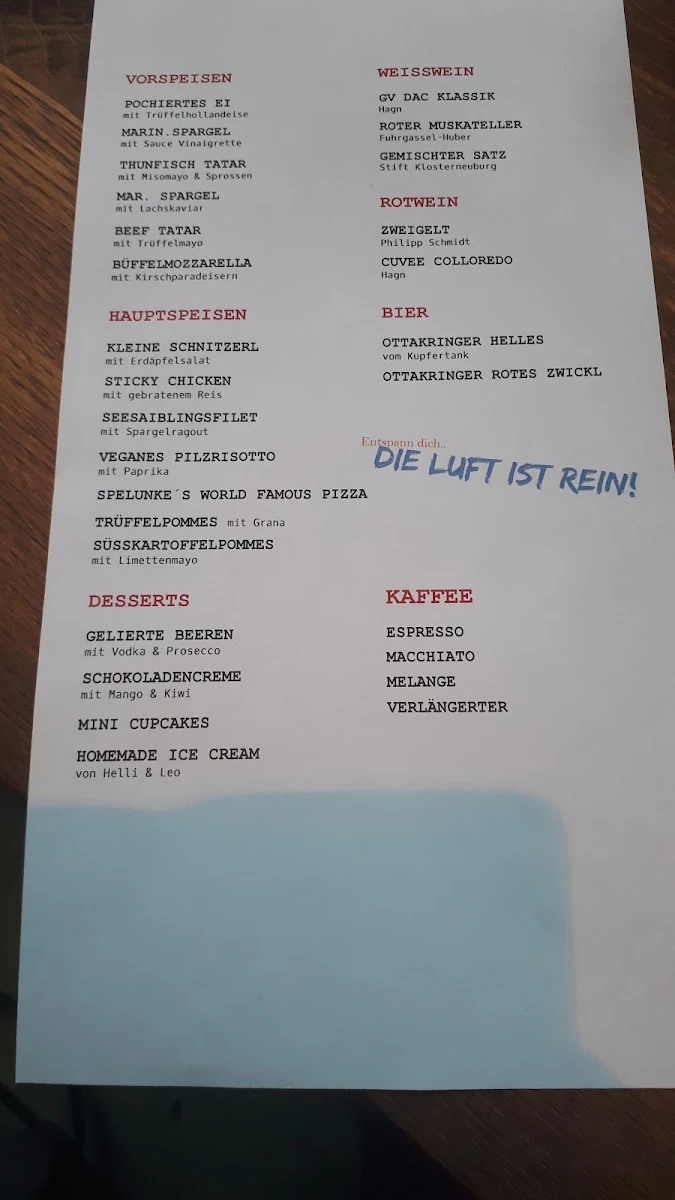 VORSPEISEN
POCHIERTES EI
mit Trüffelhollandeise
MARIN.SPARGEL
mit Sauce Vinaigrette
THUNFISCH TATAR
mit Misomayo & Sprossen
MAR. SPARGEL
mit Lachskaviar
BEEF TATAR
mit Trüffelmayo
BÜFFELMOZZARELLA
mit Kirschparadeisern
HAUPTSPEISEN
KLEINE SCHNITZERL
mit Erdäpfelsalat
STICKY CHICKEN
mit gebratenem Reis
SEESAIBLINGSFILET
mit Spargelragout
VEGANES PILZRISOTTO
mit Paprika
SPELUNKE´S WORLD FAMOUS PIZZA
TRÜFFELPOMMES mit Grana
SÜSSKARTOFFELPOMMES
mit Limettenmayo
DESSERTS
GELIERTE BEEREN
mit Vodka & Prosecco
SCHOKOLADENCREME
mit Mango & Kiwi
MINI CUPCAKES
HOMEMADE ICE CREAM
von Helli & Leo
WEISSWEIN
GV DAC KLASSIK
Hagn
ROTER MUSKATELLER
Fuhrgassel-Huber
GEMISCHTER SATZ
Stift Klosterneuburg
ROTWEIN
ZWEIGELT
Philipp Schmidt
CUVEE COLLOREDO
Hagn
BIER
OTTAKRINGER HELLES
vom Kupfertank
OTTAKRINGER ROTES ZWICKL
Entspann dich..
DIE LUFT IST REIN!
KAFFEE
ESPRESSO
MACCHIATO
MELANGE
VERLÄNGERTER